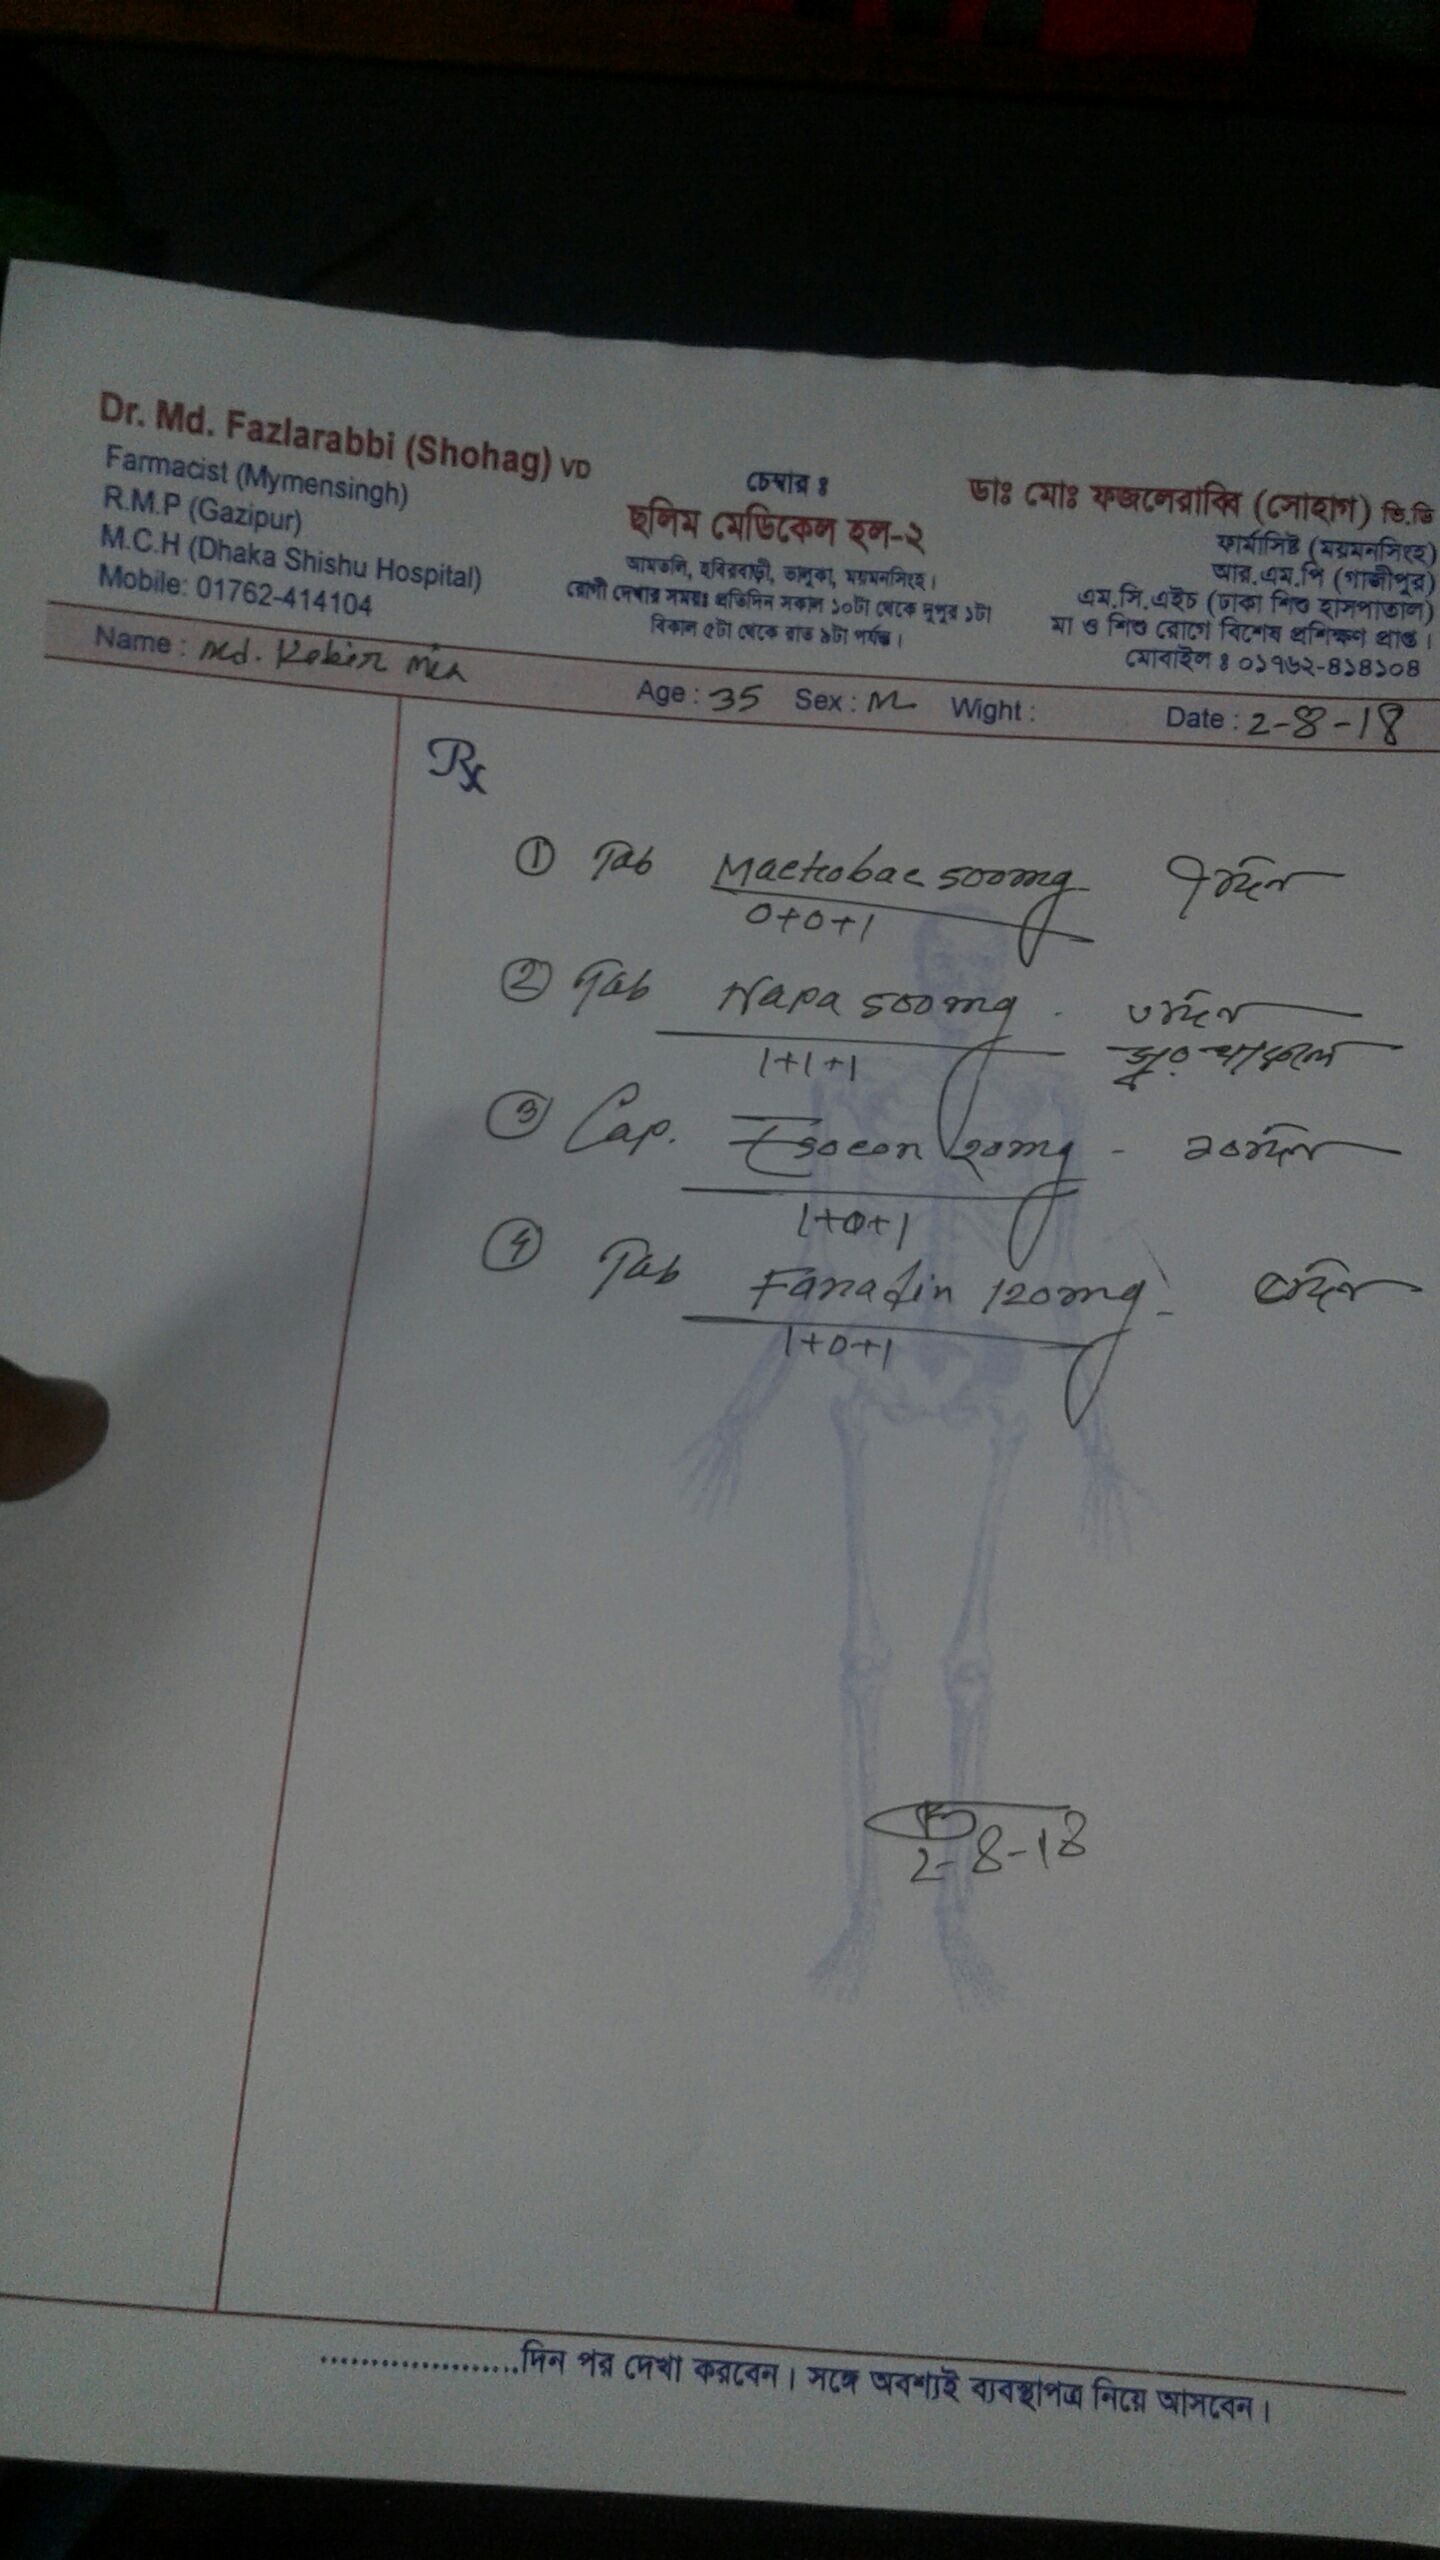 Dr. Md. Fazlarabbi (Shohag) VD
Farmacist (Mymensingh)
R.M.P (Gazipur)
M.C.H (Dhaka Shishu Hospital)
Mobile: 01762-414104
চেম্বার ঃ
ছলিম মেডিকেল হল-২
আমতলি, হবিরবাড়ী, ভালুকা, ময়মনসিংহ।
রোগী দেখার সময়ঃ প্রতিদিন সকাল ১০টা থেকে দুপুর ১টা
বিকাল ৫টা থেকে রাত ৯টা পর্যন্ত।
ডাঃ মোঃ ফজলেরাব্বি (সোহাগ) ভি.ডি
ফার্মাসিষ্ট (ময়মনসিংহ)
আর.এম.পি (গাজীপুর)
এম.সি.এইচ (ঢাকা শিশু হাসপাতাল)
মা ও শিশু রোগে বিশেষ প্রশিক্ষণ প্রাপ্ত।
মোবাইল ঃ ০১৭৬২-৪১৪১০৪
Name : Md. Kobir Mia Age : 35 Sex : M Wight : Date : 2-8-18
Rx
① Tab Mactrobac 500mg ৭দিন
0+0+1
② Tab Napa 500mg . ৩দিন
1+1+1 জ্বর থাকলে
③ Cap. Esocon 20mg - ১০দিন
1+0+1
④ Tab Fanadin 120mg - ৫দিন
1+0+1
2-8-18
....................দিন পর দেখা করবেন। সঙ্গে অবশ্যই ব্যবস্থাপত্র নিয়ে আসবেন।